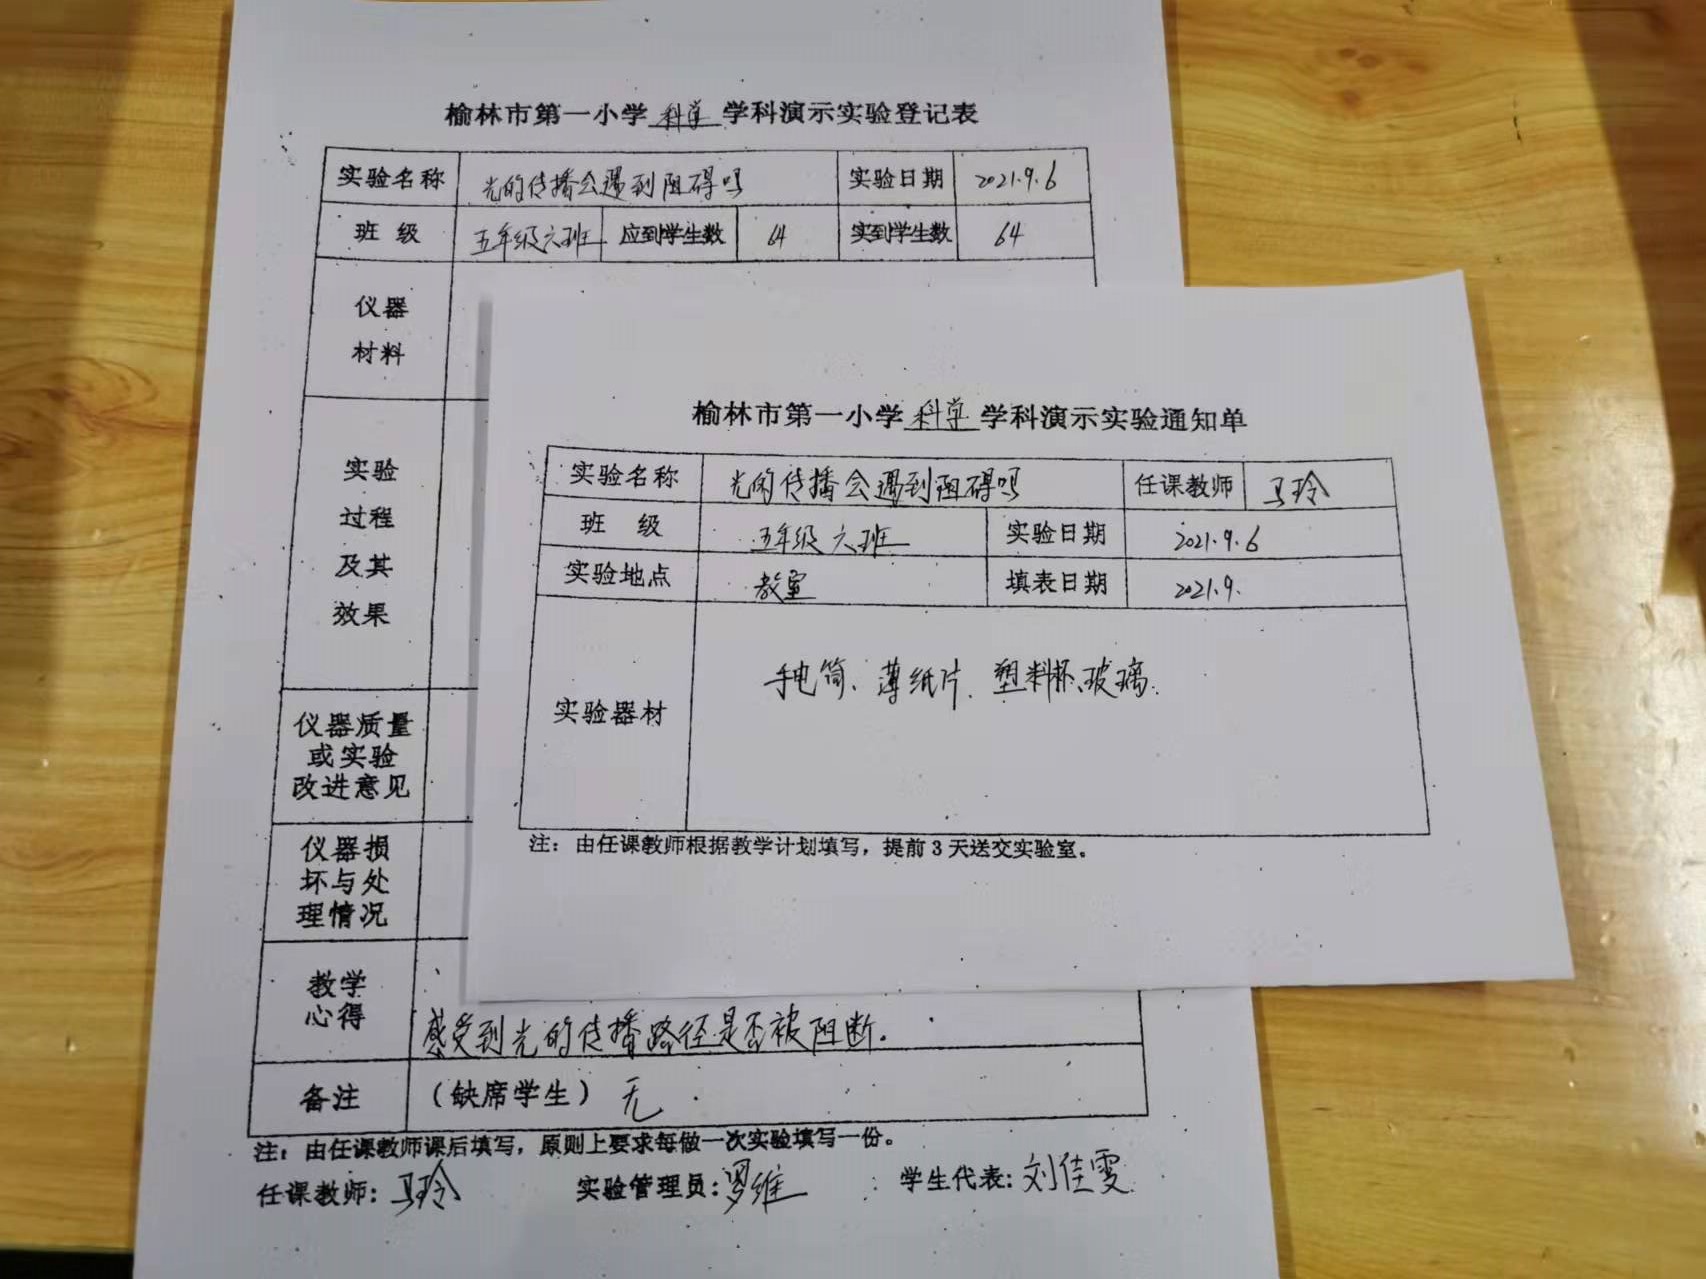 榆林市第一小学科学学科演示实验登记表
实验名称 光的传播会遇到阻碍吗 实验日期 2021.9.6
班 级 五年级六班 应到学生数 64 实到学生数 64
仪器
材料
实验
过程
及其
效果
仪器质量
或实验
改进意见
仪器损
坏与处
理情况
教学
心得
感受到光的传播路径是否被阻断。
备注 （缺席学生） 无
注：由任课教师课后填写，原则上要求每做一次实验填写一份。
任课教师：马玲 实验管理员：罗维 学生代表：刘佳雯
榆林市第一小学科学学科演示实验通知单
实验名称 光的传播会遇到阻碍吗 任课教师 马玲
班 级 五年级六班 实验日期 2021.9.6
实验地点 教室 填表日期 2021.9.
实验器材 手电筒、薄纸片、塑料杯、玻璃.
注：由任课教师根据教学计划填写，提前 3 天送交实验室。